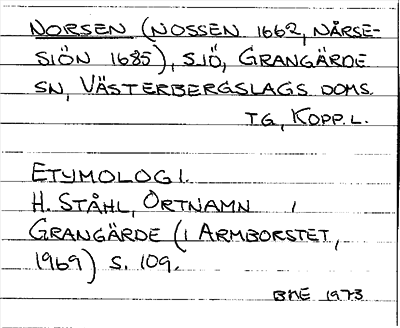 NORSEN (NOSSEN 1662, NÅRSE-
SIÖN 1685), SJÖ, GRANGÄRDE
SN, VÄSTERBERGSLAGS DOMS.
TG, KOPP. L.
ETYMOLOGI.
H. STÅHL, ORTNAMN I
GRANGÄRDE (I ARMBORSTET,
1969) S. 109.
BNE 1973